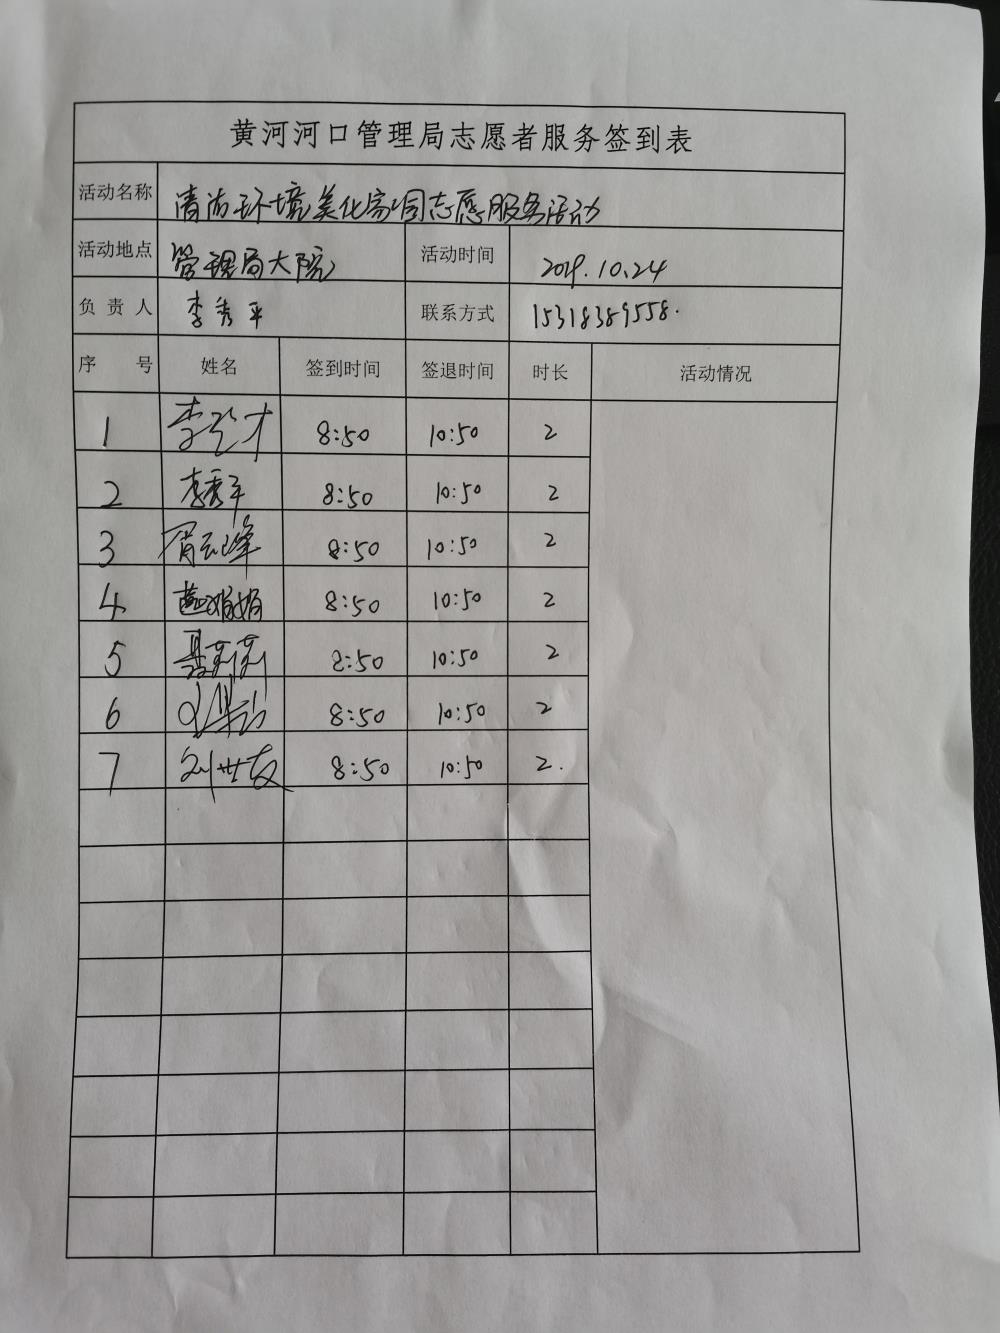 黄河河口管理局志愿者服务签到表
活动名称 清洁环境美化家园志愿服务活动
活动地点 管理局大院 活动时间 2019.10.24
负责人 李秀平 联系方式 15318389558.
序号 姓名 签到时间 签退时间 时长 活动情况
1 李 才 8:50 10:50 2
2 李秀平 8:50 10:50 2
3 胥云峰 8:50 10:50 2
4 娟娟 8:50 10:50 2
5 聂莉莉 8:50 10:50 2
6 8:50 10:50 2
7 刘世友 8:50 10:50 2.